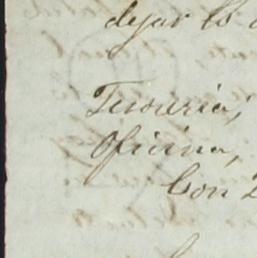 dejar lo
Tesoreria;
Oficina,
Con 2